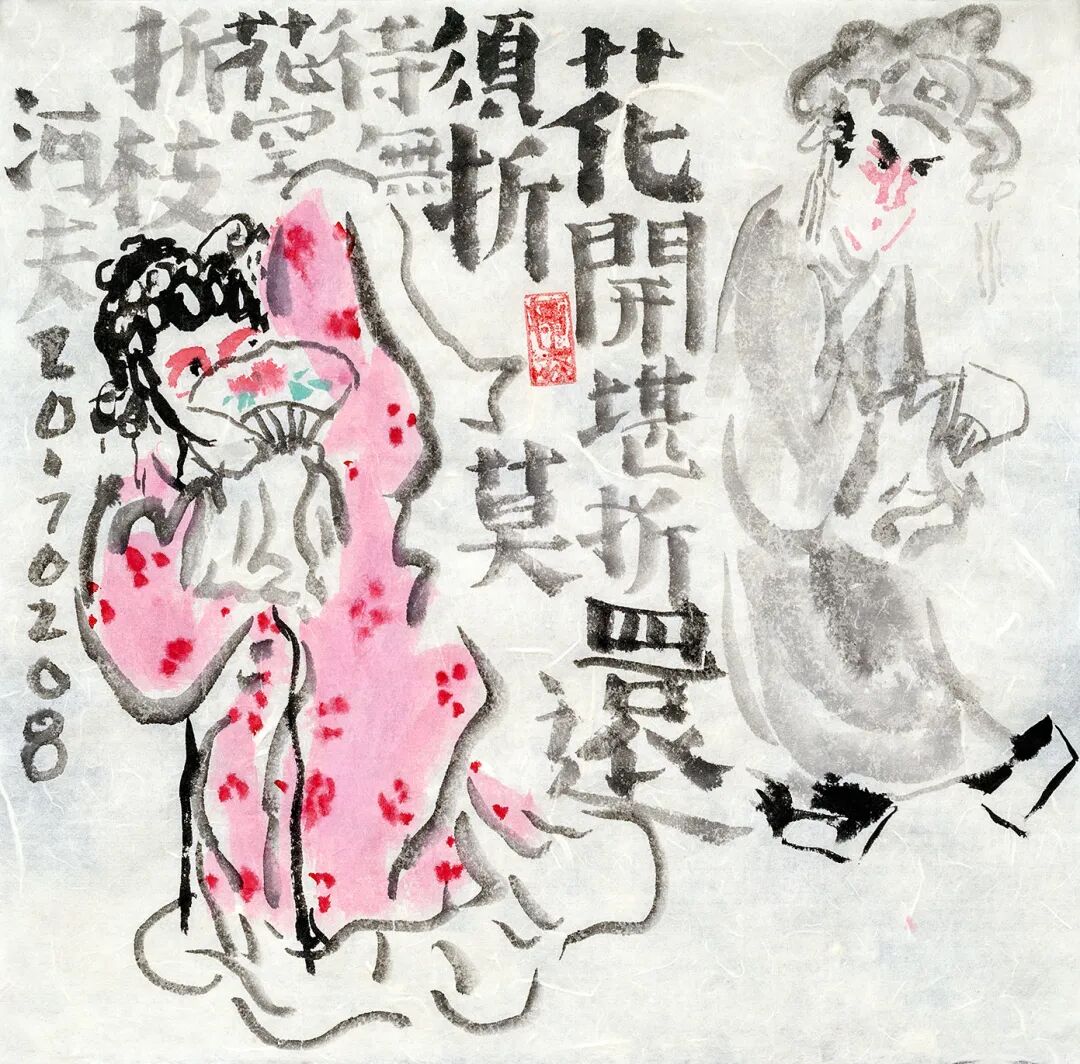 花開堪折還
須折莫
待無
花空
折枝
河夫20.70208